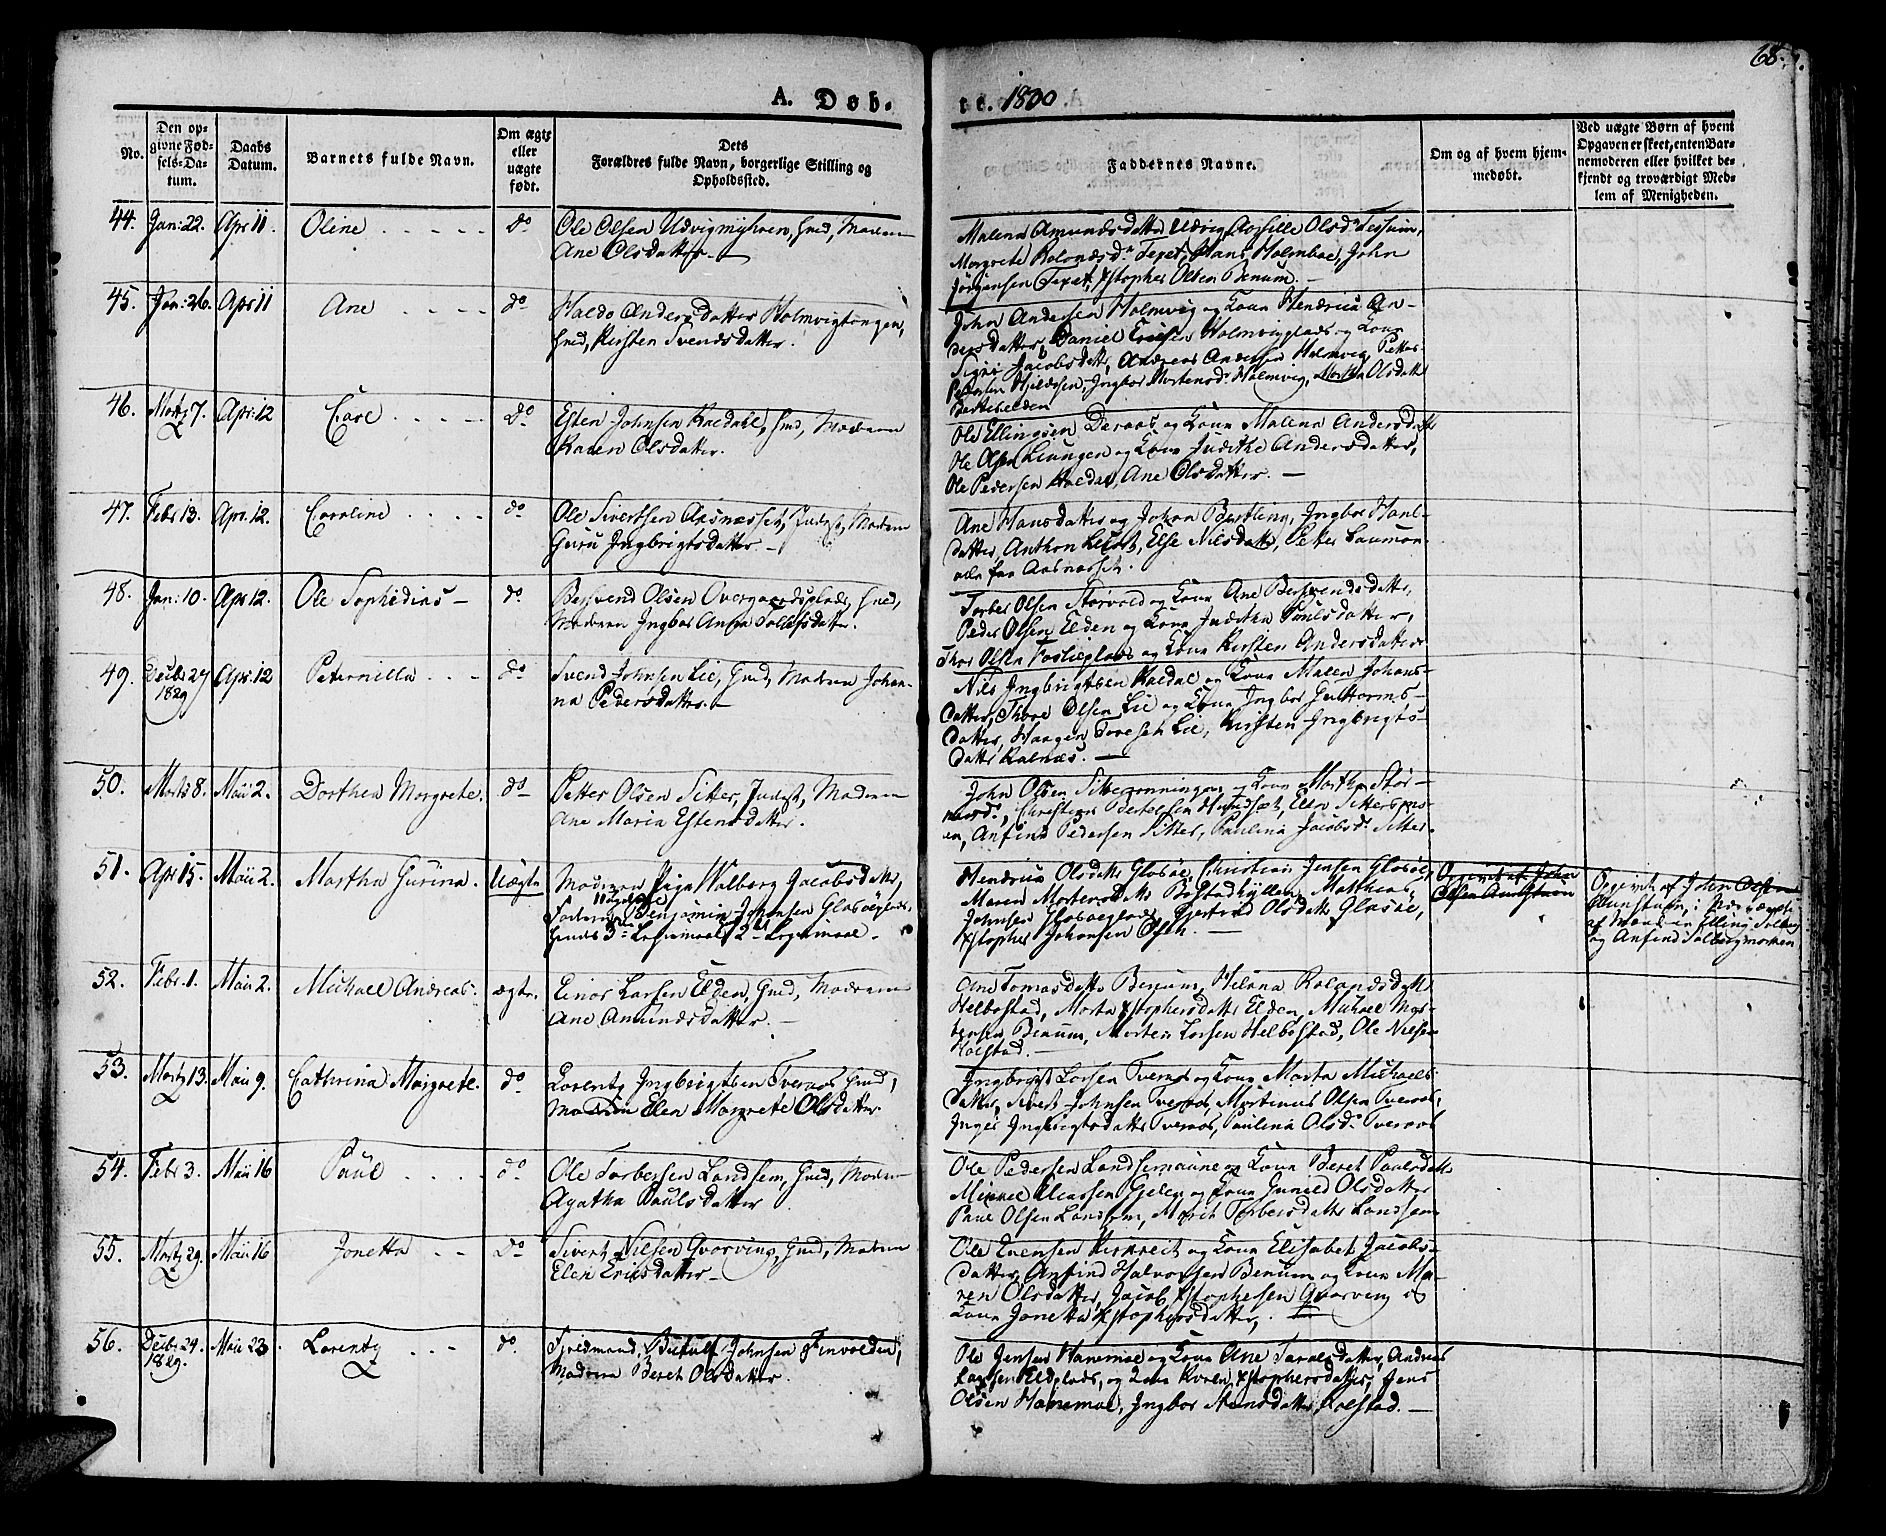 68.
A. Døb-
te. 1830
No.
Den op-
givne Fød-
sels-Da-
tum.
Daabs
Datum.
Barnets fulde Navn.
Om ægte
eller
uægte
født.
Dets
Forældres fulde Navn, borgerlige Stilling og
Opholdssted.
Faddernes Navne.
Om og af hvem hjem-
medøbt.
Ved uægte Børn af hvem
Opgaven er skeet, enten Bar-
nemoderen eller hvilket be-
kjendt og troværdigt Med-
lem af Menigheden.
44. Jan: 22. Apr 11. Oline do
Ole Olsen Udvigmyhren, Gmd, Moderen
Ane Olsdatter.
Malena Amundsdatter Udvig, Olsd: Tessum,
Margrete Texet, Hans Holmboe, John
Jörgensen Texet, Xstopher Olsen Benum.
45. Jan: 26. Apr 11 Ane do
Andersdatter Holmvigtangen,
Gmd, Kirsten Svendsdatter.
John Andersen Holmvig og Kone Hendrica An-
dersdatter, Daniel Holmvigplads og Kone
Signi Jacobsdatter, Andreas Andersen Holmvig, Petter
Pedersen Hjeldsen, Ingbor Mortensd: Holmvig, Martha Olsdatter
46. Marty 7. Apr: 12 Carl do
Esten Johnsen Kaldahl, Gmd, Moderen
Karen Olsdatter.
Ole Ellingsen Deraas og Kone Malena Andersdatter
Ole Olsen Leungen og Kone Judithe Andersdatter,
Ole Pedersen Kaldal, Ane Olsdatter.
47. Febr 13. Apr. 12. Caroline do
Ole Sivertsen Aasnæsset, Inderst, Moderen
Guru Ingbrigtsdatter
Ane Hansdatter og Johan Bertling, Ingbor
datter, Anthon Else Nilsdatter, Petter
alle fra Aasnæsset.
48. Jan: 10. Apr 12. Ole Sophidius do
Berfvend Olsen Overgaardsplads, Gmd,
Moderen Ingbor Anna Tollefsdatter.
Torber Olsen Storvold og Kone Ane Berfvendsdatter,
Peder Olsen Elden og Kone Judithe Paulsdatter,
Thor Olsen Foslieplads og Kone Kirsten Andersdatter
49. Decbr 27 1829 Apr. 12 Peternilla do
Svend Johnsen Lie, Gmd, Moderen Johan-
na Pedersdatter.
Nils Ingbrigtsen Kaldal og Kone Malen Johans-
datter, Thore Olsen Lie og Kone Ingbor Guttorms-
datter, Haagen Toresen Lie, Kirsten Ingbrigts-
datter Kalnæs.
50. Marts 8. Maii 2. Dorthea Margrete. do
Petter Olsen Sitter, Inderst, Moderen
Ane Maria Estensdatter.
John Olsen Sitterrönningen og Kone Martha Stör-
Christian Bertelsen Hundsæt, Ellen Sittersmo-
en, Anfind Pedersen Sitter, Paulina Jacobsd: Sitter.
51. Apr 15. Maii 2. Martha Gurina. Uægte
Moderen Pige Walborg Jacobsdatter,
Faderen Ungkarl Benjamin Johansen Glasöeplads,
hendes 3die Leiermaal, 2det Leiermaal.
Hendrica Olsdatter Glasöe, Christian Jensen Glasöe,
Maren Mortensdatter Bölstadhyllen, Matthias
Johnsen Glasöeplads, Gjertrud Olsdatter Glasöe,
Xstopher Johansen Olsen.
Opgivet af John
Olsen Aunstuen
Opgivet af John Olsen
Aunstuen,
af Mænd Elling Solberg
og Anfind Solbergmarken
52. Febr. 1. Maii 2. Michael Andreas. ægte.
Einar Larsen Elden, Gmd, Moderen
Ane Amundsdatter.
Ane Tomasdatter Benum, Helena Rolandsdatter
Helbostad, Marta Xstophersdatter Elden, Michael Mor-
tensen Benum, Morten Larsen Helbostad, Ole Nilsen
Holstad.
53. Marty 13. Maii 9. Cathrina Margrete. do
Lorentz Ingbrigtsen Tveraas Gmd,
Moderen Elen Margrete Olsdatter.
Ingbrigt Larsen Tveraas og Kone Marta Michaels-
datter, Sivert Johnsen Tveraas, Mortinus Olsen Tveraas,
Inger Ingbrigtsdatter Tveraas, Paulina Olsd: Tveraas
54. Febr 3. Maii 16 Paul do
Ole Torbersen Landsem, Gmd, Moderen
Agatha Paulsdatter
Ole Pedersen Landsemaune og Kone Beret Paulsdatter
Michael og Kone Gunild Olsdatter
Paul Olsen Landsem, Marit Torbersdatter Landsem
55. Marty 29. Maii 16 Jonetta do
Sivert Nilsen Qvarving, Gmd, Moderen
Elen Ericsdatter
Ole Evensen Kirkreit og Kone Elisabet Jacobs-
datter, Anfind Halvorsen Benum og Kone Ma-
ren Olsdatter, Jacob Xstophersen Qvarving og
Kone Jonetta Xstophersdatter.
56. Decbr 24. 1829. Maii 23 Lorentz do
Gjestmand, Johnsen Finvolden,
Moderen Beret Olsdatter.
Ole Jensen Hanemoe og Kone Ane datter, Andreas
Larsen Eldplads, og Kone Karen Xstophersdatter, Jens
Olsen Hanemoe, Ingbor datter, Holstad.